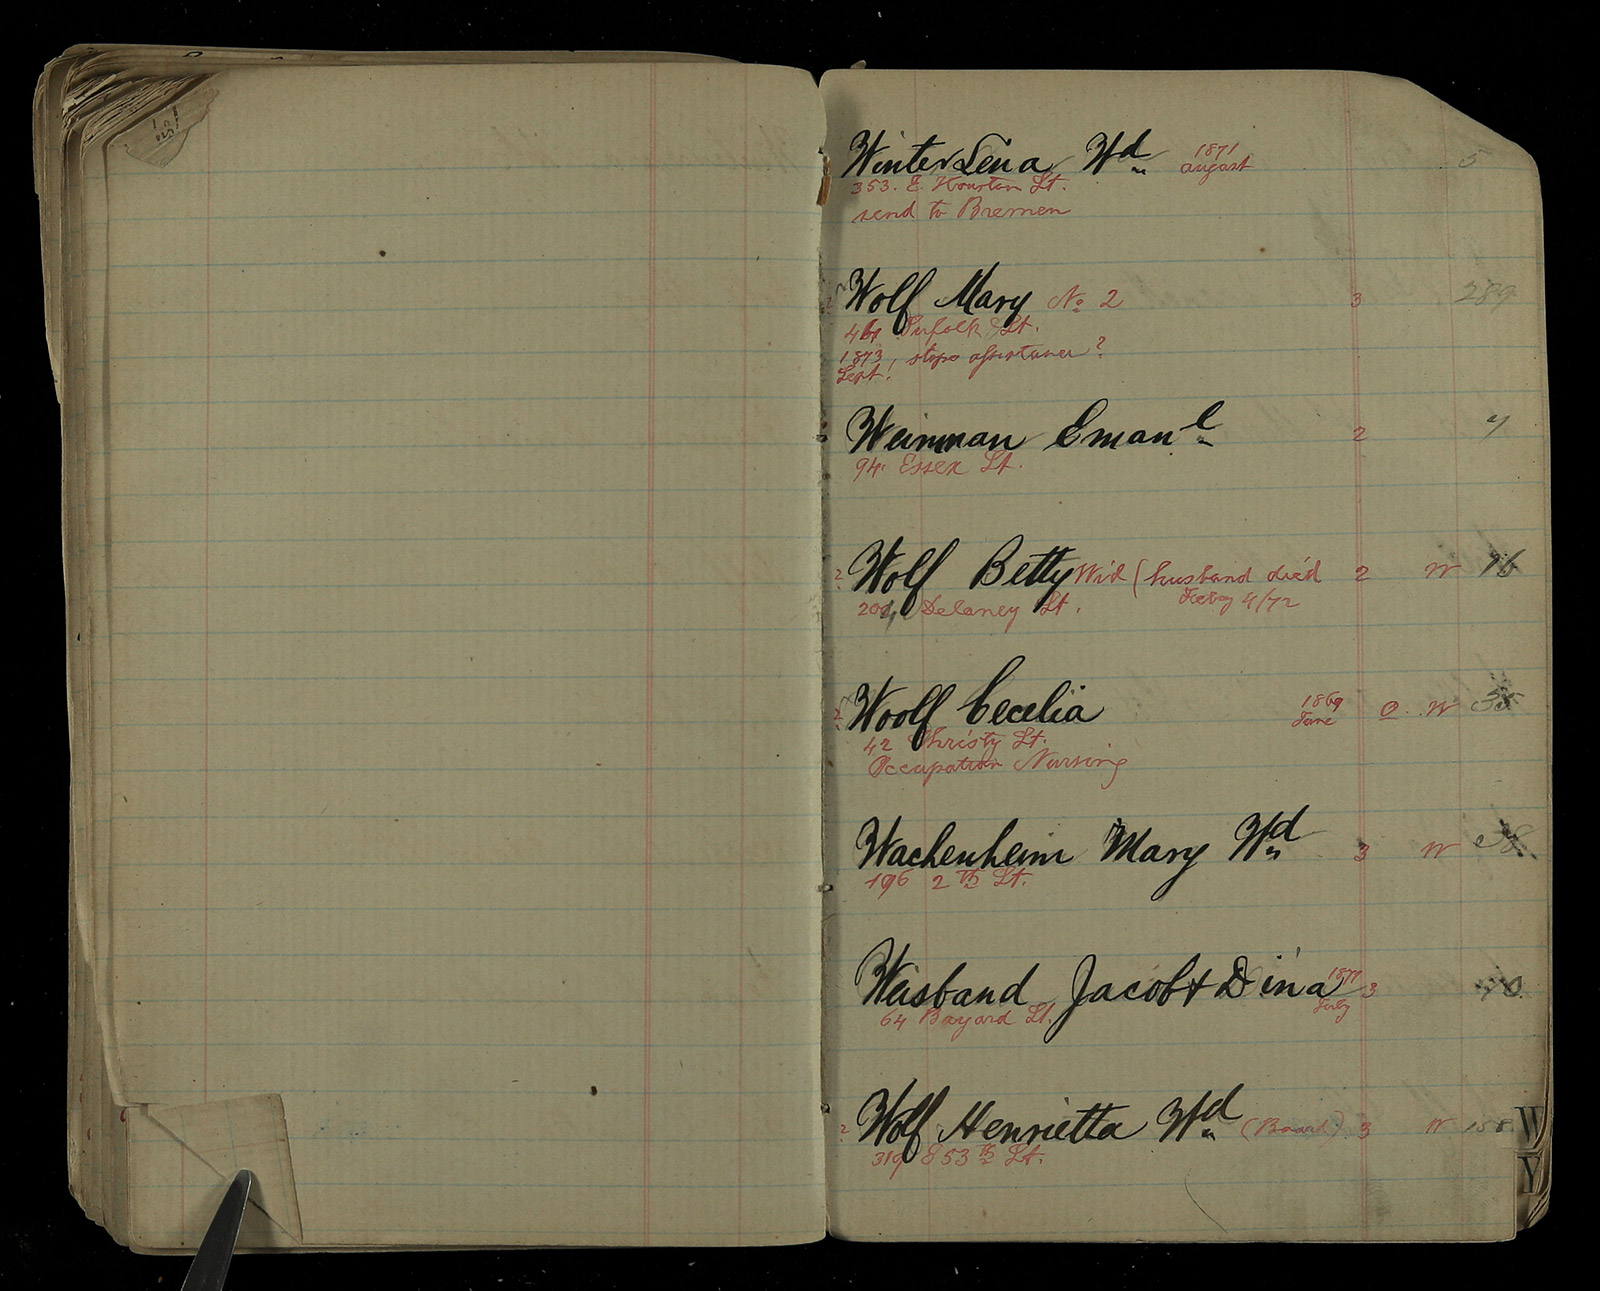 Winter Lena Wd 1871 August 5
353. E. Houston St.
send to Bremen
Wolf Mary No 2 3 289
Suffolk St.
1873, stops
Sept!
Weinman Emanl 2 7
94 Essex St.
2 Wolf Betty Wid (husband died 2 W 76
Delaney St. 4/72
2 Woolf Cecelia 1869 June O. W 35
42 Christy St.
Occupation Nursing
Wachenheim Mary Wd 3 W
196 2th St.
Weisband Jacob & Dina 1871 July 3
64 Bayard St.
2 Wolf Henrietta Wd (Board) 3 W 158
319 E 53th St.
W
Y